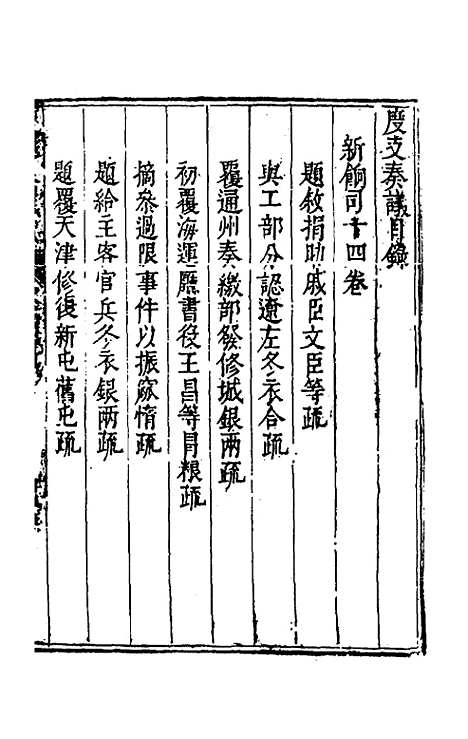 度支奏議目錄
新餉司十四卷
題敘捐助戚臣文臣等疏
與工部分認遼左冬衣合疏
覆通州奏繳部發修城銀兩疏
初覆海運廳書役王昌等冐粮疏
摘叅過限事件以振窳惰疏
題給主客官兵冬衣銀兩疏
題覆天津修復新屯舊屯疏